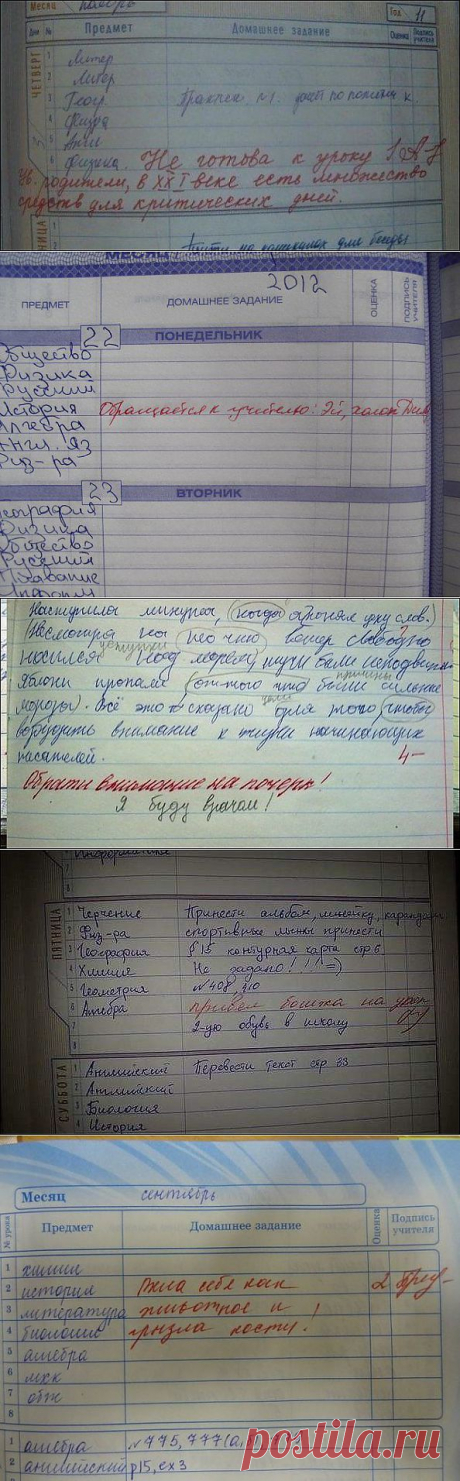 Месяц ноябрь
Год 11
Дни № Предмет Домашнее задание Оценка Подпись учителя
ЧЕТВЕРГ
1 Литер
2 Литер
3 Геогр. Практич. №1.
4 Физра
5 Англ
6 Физика. Не готова к уроку
Ув. родители, в XXI веке есть множество
средств для критических дней.
ПРЕДМЕТ ДОМАШНЕЕ ЗАДАНИЕ 2012 ОЦЕНКА ПОДПИСЬ УЧИТЕЛЯ
22 ПОНЕДЕЛЬНИК
Общество
Физика
Русский
История Обращается к учителю: Эй, холоп
Алгебра
Англ. яз
Физ-ра
23 ВТОРНИК
География
Физика
Общество
Русский
Плавание
Информ
Наступила минута, когда я понял цену слов.
Несмотря на
носился над морем, тучи были неподвижны
Яблоки пропали оттого что были сильные
морозы. Всё это сказано для того чтобы
возбудить внимание к жизни начинающих
писателей. 4-
Обрати внимание на почерк!
Я буду врачом!
Информатика
7
8
ПЯТНИЦА
1 Черчение Принести альбом, линейку, карандаши
2 Физ-ра спортивные лыжи принести
3 География §15 контурная карта стр.6
4 Химия Не задано!!! =)
5 Геометрия №408, 310
6 Алгебра привел бомжа на урок
7 2-ую обувь в школу
8
СУББОТА
1 Английский Перевести текст стр 33
2 Английский
3 Биология
4 История
Месяц сентябрь
№ урока Предмет Домашнее задание Оценка Подпись учителя
1 химия
2 история Вела себя как 2
3 литература животное и
4 биология грызла кости!
5 алгебра
6 мхк
7 обж
8
1 алгебра №775, 777
2 английский р15, ex3
postila.ru